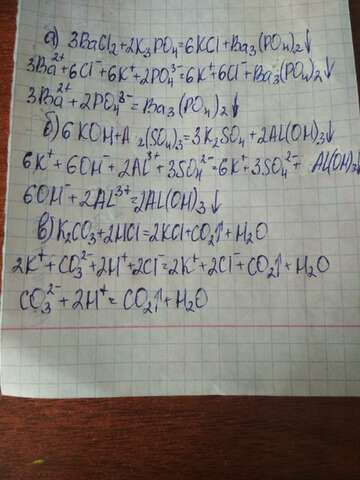 а) 3BaCl₂+2K₃PO₄=6KCl+Ba₃(PO₄)₂↓
3Ba²⁺+6Cl⁻+6K⁺+2PO₄³⁻=6K⁺+6Cl⁻+Ba₃(PO₄)₂↓
3Ba²⁺+2PO₄³⁻=Ba₃(PO₄)₂↓
б) 6KOH+A ₂(SO₄)₃=3K₂SO₄+2Al(OH)₃↓
6K⁺+6OH⁻+2Al³⁺+3SO₄²⁻=6K⁺+3SO₄²⁻+ Al(OH)₃↓
6OH⁻+2Al³⁺=2Al(OH)₃↓
в) K₂CO₃+2HCl=2KCl+CO₂↑+H₂O
2K⁺+CO₃²⁻+2H⁺+2Cl⁻=2K⁺+2Cl⁻+CO₂↑+H₂O
CO₃²⁻+2H⁺=CO₂↑+H₂O